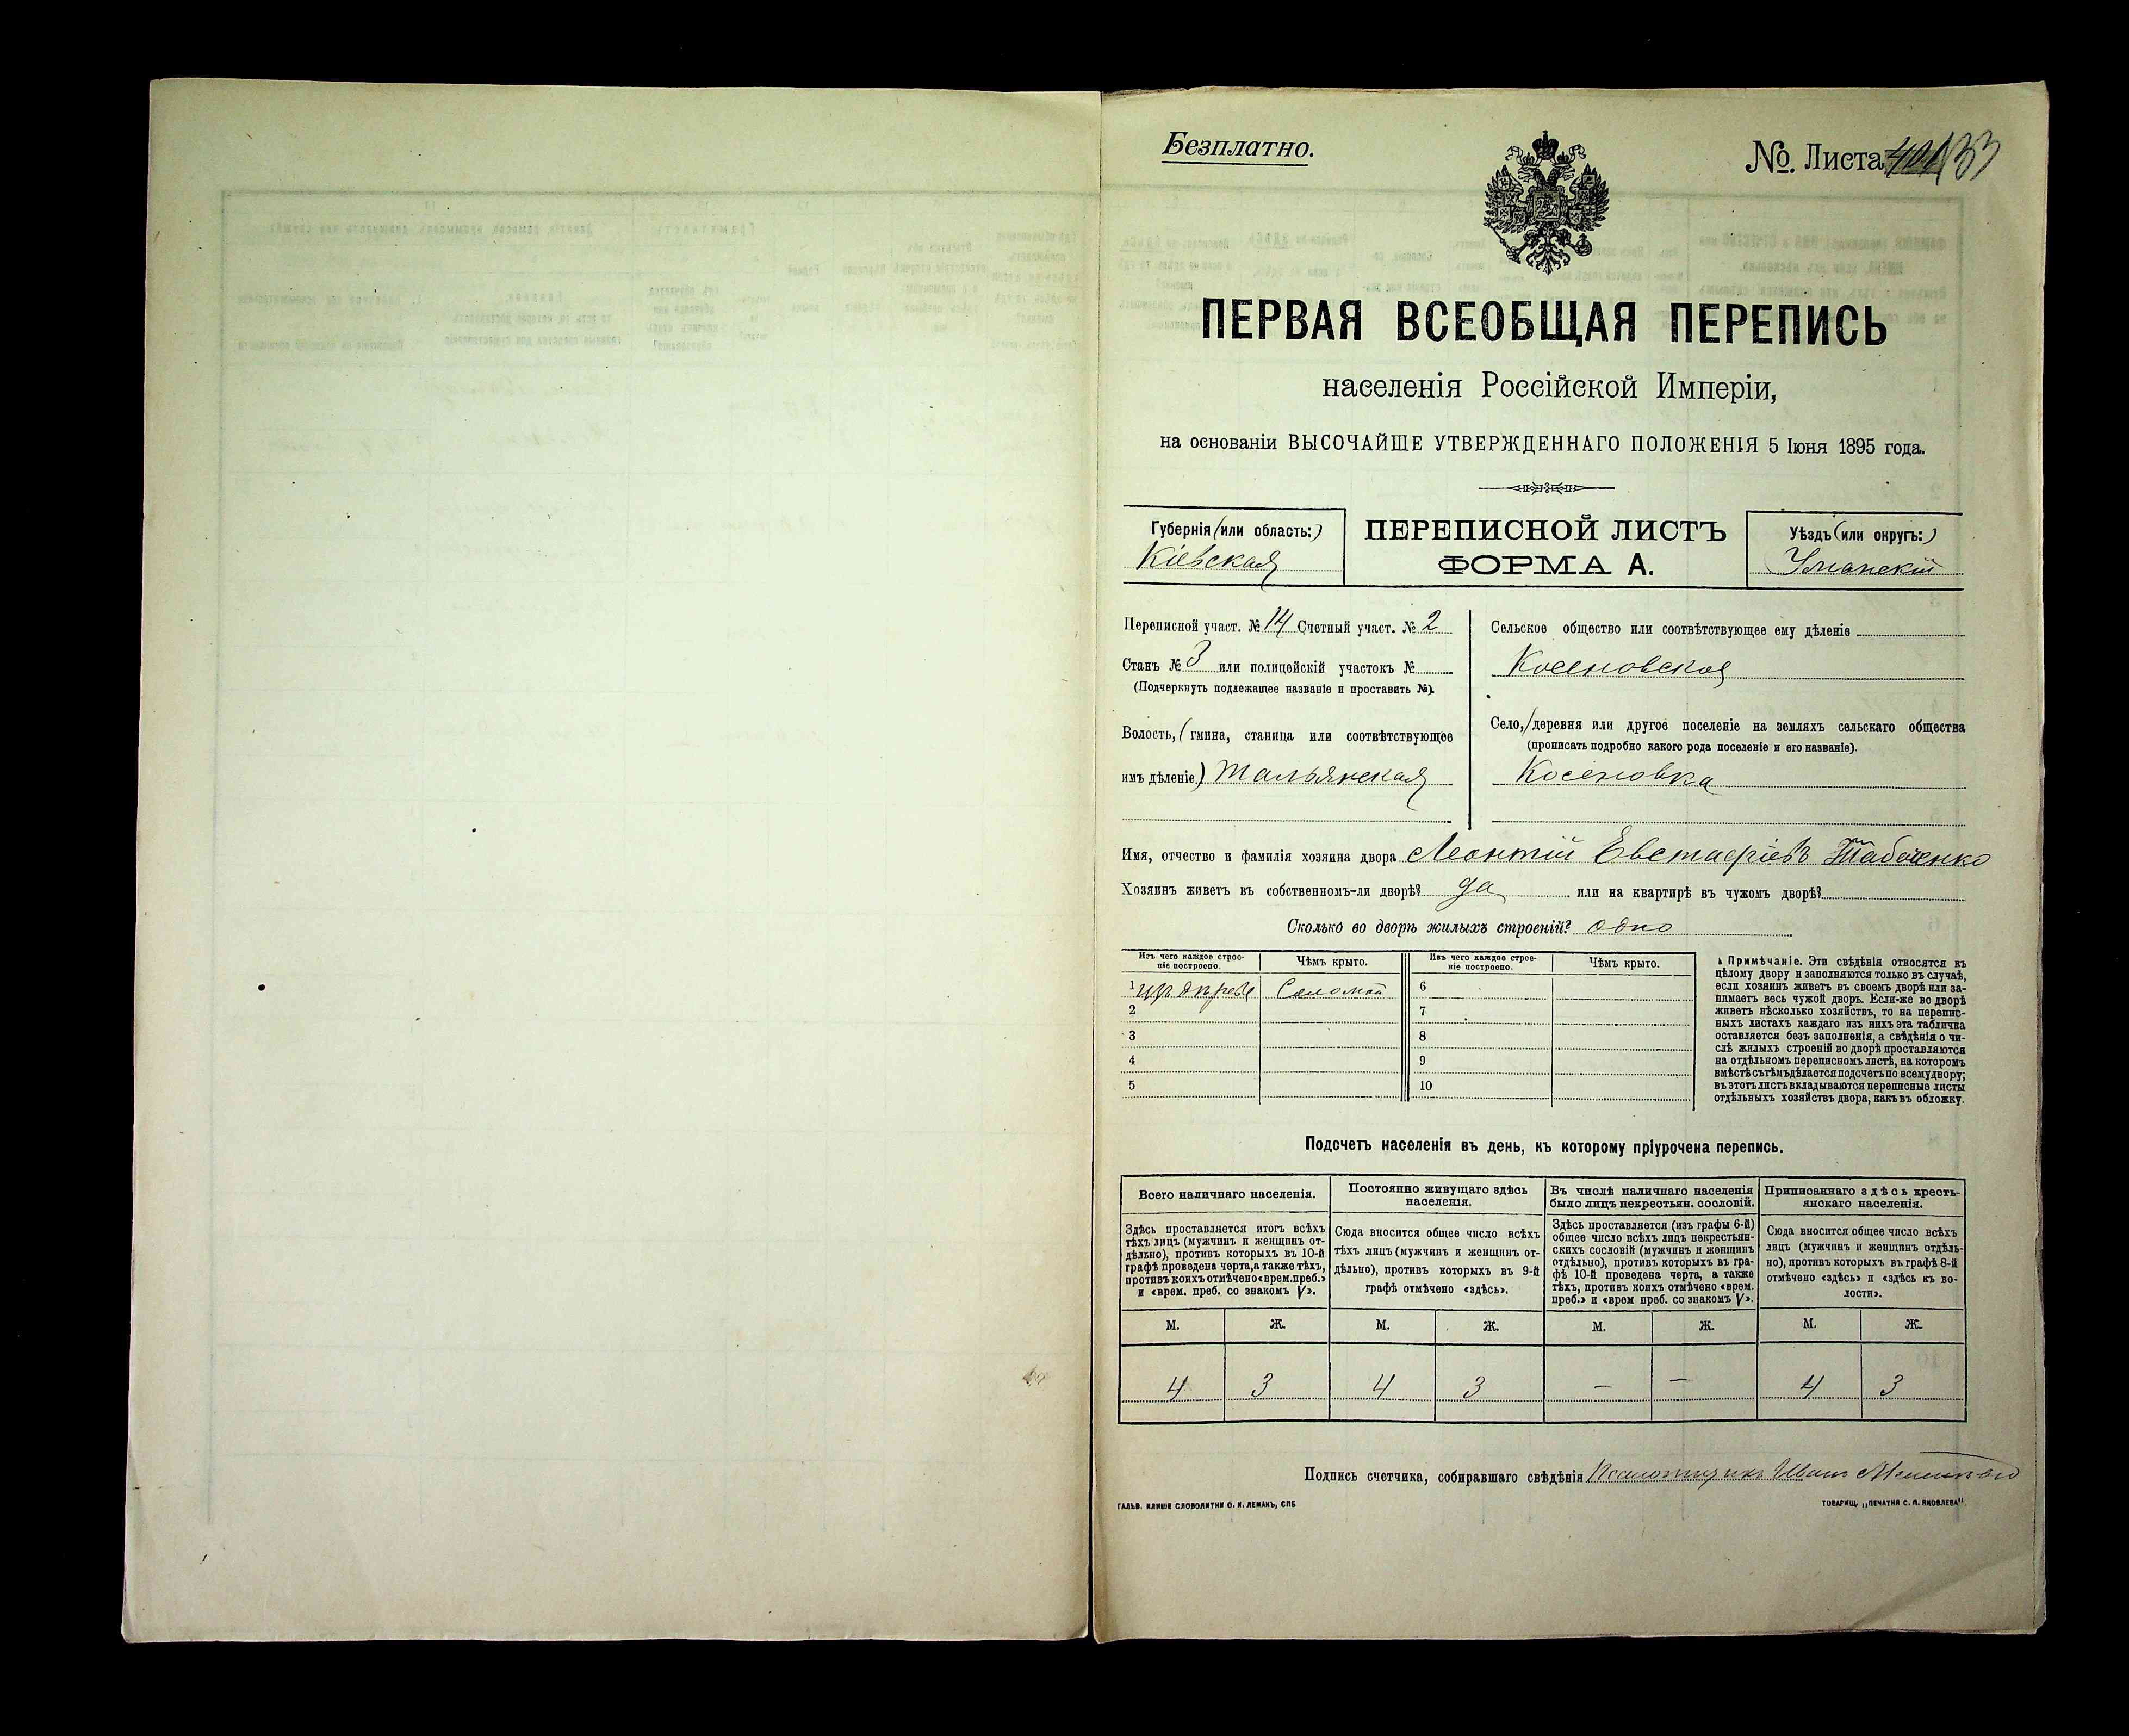 Безплатно.
№. Листа 133
ПЕРВАЯ ВСЕОБЩАЯ ПЕРЕПИСЬ
населенія Россійской Имперіи,
на основаніи ВЫСОЧАЙШЕ УТВЕРЖДЕННАГО ПОЛОЖЕНІЯ 5 Іюня 1895 года.
Губернія (или область:)
Кіевская
ПЕРЕПИСНОЙ ЛИСТЪ
ФОРМА А.
Уѣздъ (или округъ:)
Уманскій
Переписной участ. № 14 Счетный участ. № 2
Станъ № 3 или полицейскій участокъ №
(Подчеркнуть подлежащее названіе и проставить №).
Волость, (гмина, станица или соотвѣтствующее
имъ дѣленіе) Тальянская
Сельское общество или соотвѣтствующее ему дѣленіе
Косеновское
Село, деревня или другое поселеніе на земляхъ сельскаго общества
(прописать подробно какого рода поселеніе и его названіе).
Косеновка
Имя, отчество и фамилія хозяина двора Леонтій Евстафіевъ
Хозяинъ живетъ въ собственномъ-ли дворѣ? да или на квартирѣ въ чужомъ дворѣ?
Сколько во дворѣ жилыхъ строеній? одно
Изъ чего каждое строе-
ніе построено.
Чѣмъ крыто.
Изъ чего каждое строе-
ніе построено.
Чѣмъ крыто.
1 Соломой 6
2 7
3 8
4 9
5 10
Примѣчаніе. Эти свѣдѣнія относятся къ
цѣлому двору и заполняются только въ случаѣ,
если хозяинъ живетъ въ своемъ дворѣ или за-
нимаетъ весь чужой дворъ. Если-же во дворѣ
живетъ нѣсколько хозяйствъ, то на перепис-
ныхъ листахъ каждаго изъ нихъ эта табличка
оставляется безъ заполненія, а свѣдѣнія о чи-
слѣ жилыхъ строеній во дворѣ проставляются
на отдѣльномъ переписномъ листѣ, на которомъ
вмѣстѣ съ тѣмъ дѣлается подсчетъ по всему двору;
въ этотъ листъ вкладываются переписные листы
отдѣльныхъ хозяйствъ двора, какъ въ обложку.
Подсчетъ населенія въ день, къ которому пріурочена перепись.
Всего наличнаго населенія.
Здѣсь проставляется итогъ всѣхъ
тѣхъ лицъ (мужчинъ и женщинъ от-
дѣльно), противъ которыхъ въ 10-й
графѣ проведена черта, а также тѣхъ,
противъ коихъ отмѣчено «врем. преб.»
и «врем. преб. со знакомъ V».
Постоянно живущаго здѣсь
населенія.
Сюда вносится общее число всѣхъ
тѣхъ лицъ (мужчинъ и женщинъ от-
дѣльно), противъ которыхъ въ 9-й
графѣ отмѣчено «здѣсь».
Въ числѣ наличнаго населенія
было лицъ некрестьян. сословій.
Здѣсь проставляется (изъ графы 6-й)
общее число всѣхъ лицъ некрестьян-
скихъ сословій (мужчинъ и женщинъ
отдѣльно), противъ которыхъ въ гра-
фѣ 10-й проведена черта, а также
тѣхъ, противъ коихъ отмѣчено «врем.
преб.» и «врем преб. со знакомъ V».
Приписаннаго здѣсь кресть-
янскаго населенія.
Сюда вносится общее число всѣхъ
лицъ (мужчинъ и женщинъ отдѣль-
но), противъ которыхъ въ графѣ 8-й
отмѣчено «здѣсь» и «здѣсь къ во-
лости».
М. Ж. М. Ж. М. Ж. М. Ж.
4 3 4 3 – – 4 3
Подпись счетчика, собиравшаго свѣдѣнія Псаломщикъ Иванъ
ГАЛЬВ. КЛИШЕ СЛОВОЛИТНИ О. И. ЛЕМАНЪ, СПБ
ТОВАРИЩ. „ПЕЧАТНЯ С. П. ЯКОВЛЕВА"